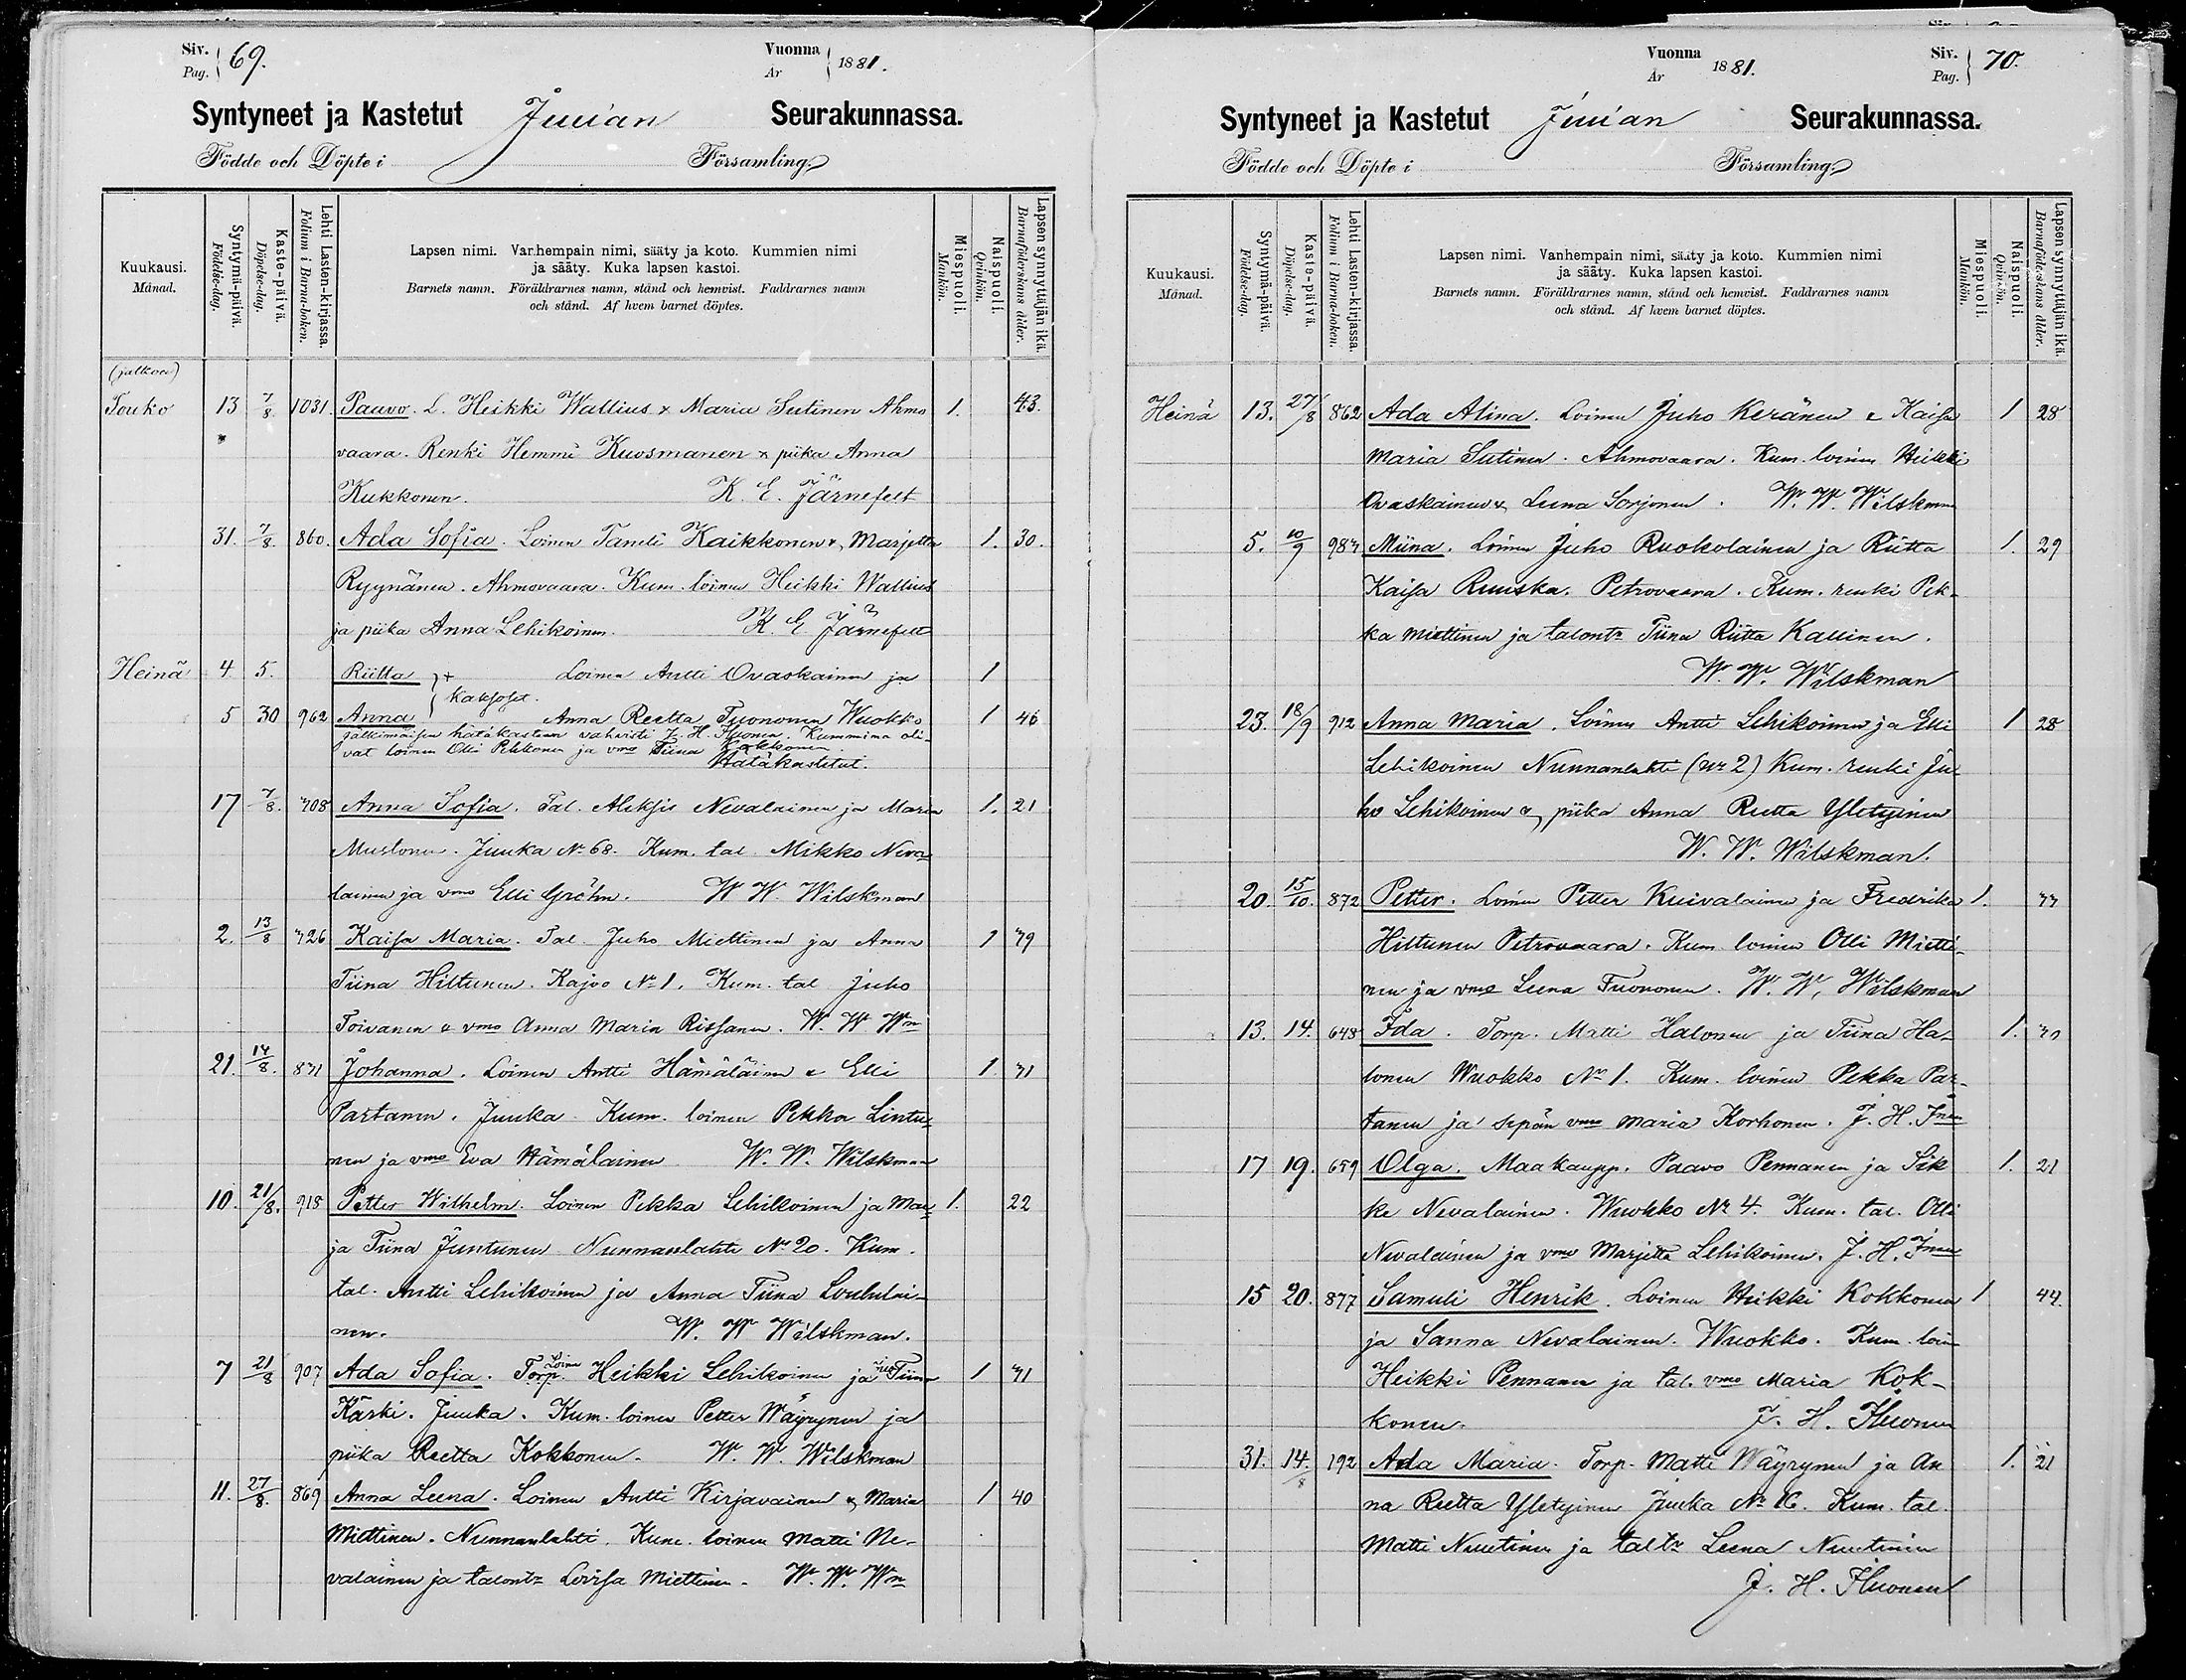 Siv. Pag. 69.
Vuonna År 1881.
Syntyneet ja Kastetut Juuan Seurakunnassa.
Födde och Döpte i Församling.
Kuukausi. Månad.
Syntymä-päivä. Födelse-dag.
Kaste-päivä. Döpelse-dag.
Lehti Lasten-kirjassa. Folium i Barna-boken.
Lapsen nimi. Vanhempain nimi, sääty ja koto. Kummien nimi
ja sääty. Kuka lapsen kastoi.
Barnets namn. Föräldrarnes namn, stånd och hemvist. Faddrarnes namn
och stånd. Af hvem barnet döptes.
Miespuoli. Mankön.
Naispuoli. Qvinkön.
Lapsen synnyttäjän ikä. Barnaföderskans ålder.
(jatkoa)
Touko 13 7/8 1031. Paavo. L. Heikki Wallius & Maria Sutinen Ahmo 1. 43.
vaara. Renki Hemmi Kuosmanen & piika Anna
Kukkonen. K. E. Järnefelt
31. 7/8. 860. Ada Sofia. Loinen Taneli Kaikkonen & Marjetta 1. 30.
Ryynänen. Ahmovaara. Kum. loinen Heikki Wallius
ja piika Anna Lehikoinen. K. E. Järnefelt
Heinä 4 5. Riitta + Loinen Antti Ovaskainen ja 1
kaksoset.
5 30 962 Anna Anna Reetta Tuononen Wuokko 1 46
jälkimäisen hätäkasteen vahvisti J. H. Ihuonen. Kummina oli-
vat loinen Olli Pekkonen ja vmo Tiina Kokkonen.
Hätäkastetut.
17 7/8. 708 Anna Sofia. Tal. Aleksis Nevalainen ja Maria 1. 21
Mustonen. Juuka No 68. Kum. tal. Mikko Neva-
lainen ja vmo Elli Gröhn. W. W. Wilskman
2. 13/8 726 Kaisa Maria. Tal. Juho Miettinen ja Anna 1 39
Tiina Hiltunen. Kajoo No 1. Kum. tal. Juho
Toivanen & vmo Anna Maria Rissanen. W. W. Wn
21. 14/8. 831 Johanna. Loinen Antti Hämäläinen & Elli 1. 31
Partanen. Juuka. Kum. loinen Pekka Lintu-
nen ja vmo Eva Hämäläinen W. W. Wilskman
10. 21/8. 918 Petter Wilhelm. Loinen Pekka Lehikoinen ja Mar- 1. 22
ja Tiina Juntunen Nunnanlahti No 20. Kum.
tal. Antti Lehikoinen ja Anna Tiina Loululai-
nen. W. W. Wilskman.
7 21/8 907 Ada Sofia. Torp. Loinen Heikki Lehikoinen ja Tiina 1 31
Kärki. Juuka. Kum. loinen Petter Wäyrynen ja
piika Reetta Kokkonen. W. W. Wilskman
11. 27/8. 869 Anna Leena. Loinen Antti Kirjavainen & Maria 1 40
Miettinen. Nunnanlahti. Kum. loinen Matti Ne-
valainen ja talontr Lovisa Miettinen. W. W. Wn
Siv. Pag. 70.
Vuonna År 1881.
Syntyneet ja Kastetut Juuan Seurakunnassa.
Födde och Döpte i Församling.
Kuukausi. Månad.
Syntymä-päivä. Födelse-dag.
Kaste-päivä. Döpelse-dag.
Lehti Lasten-kirjassa. Folium i Barna-boken.
Lapsen nimi. Vanhempain nimi, sääty ja koto. Kummien nimi
ja sääty. Kuka lapsen kastoi.
Barnets namn. Föräldrarnes namn, stånd och hemvist. Faddrarnes namn
och stånd. Af hvem barnet döptes.
Miespuoli. Mankön.
Naispuoli. Qvinkön.
Lapsen synnyttäjän ikä. Barnaföderskans ålder.
Heinä 13. 27/8 862 Ada Alina. Loinen Juho Keränen & Kaisa 1 28
Maria Sutinen. Ahmovaara. Kum. loinen Heikki
Ovaskainen & Leena Sorjonen. W. W. Wilskman
5. 10/9 983 Miina. Loinen Juho Ruokolainen ja Riitta 1. 29
Kaisa Ruuska. Petrovaara. Kum. renki Pek-
ka Miettinen ja talontr Tiina Riitta Kallinen.
W. W. Wilskman
23. 18/9 912 Anna Maria. Loinen Antti Lehikoinen ja Elli 1 28
Lehikoinen Nunnanlahti (No 2) Kum. renki Ju-
ho Lehikoinen & piika Anna Reetta Yletyinen
W. W. Wilskman.
20. 15/10. 872 Petter. Loinen Petter Kuivalainen ja Fredrika 1. 33
Hiltunen Petrovaara. Kum. loinen Olli Mietti-
nen ja vmo Leena Tuononen. W. W. Wilskman
13. 14. 648 Ida. Torp. Matti Halonen ja Tiina Ha- 1. 30
lonen Wuokko No 1. Kum. loinen Pekka Par-
tanen ja sepän vmo Maria Korhonen. J. H. Inen
17 19. 659 Olga. Maakaupp. Paavo Pennanen ja Sik 1. 21
ke Nevalainen. Wuokko No 4. Kum. tal. Olli
Nevalainen ja vmo Marjetta Lehikoinen. J. H. Inen
15 20. 877 Samuli Henrik. Loinen Heikki Kokkonen 1 44.
ja Sanna Nevalainen. Wuokko. Kum. loin
Heikki Pennanen ja tal. vmo Maria Kok-
konen. J. H. Ihuonen
31. 14./8 192 Ada Maria. Torp. Matti Wäyrynen ja An 1. 21
na Reetta Yletyinen Juuka No 16. Kum. tal.
Matti Nuutinen ja taltr Leena Nuutinen
J. H. Ihuonen